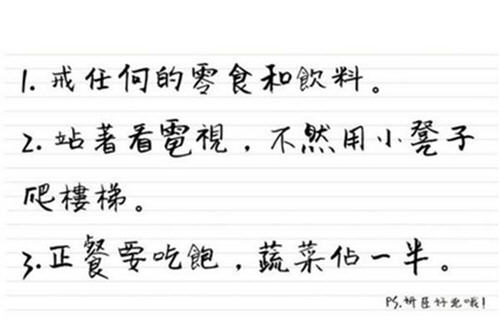 1. 戒任何的零食和飲料。
2. 站著看電視，不然用小凳子
爬樓梯。
3. 正餐要吃飽，蔬菜佔一半。
PS.